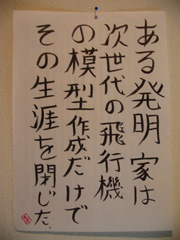 ある発明家は
次世代の飛行機
の模型作成だけで
その生涯を閉じた